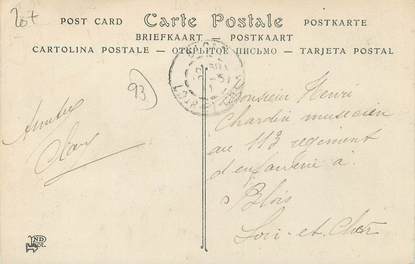 POST CARD Carte Postale POSTKARTE
BRIEFKAART — POSTKAART
CARTOLINA POSTALE — ОТКРЫТОЕ ПИСЬМО — TARJETA POSTAL
93
Monsieur Henri
Chardin musicien
au 113 regiment
d'enfanterie à
Blois
Loir-et-Cher
Amitiés
ND